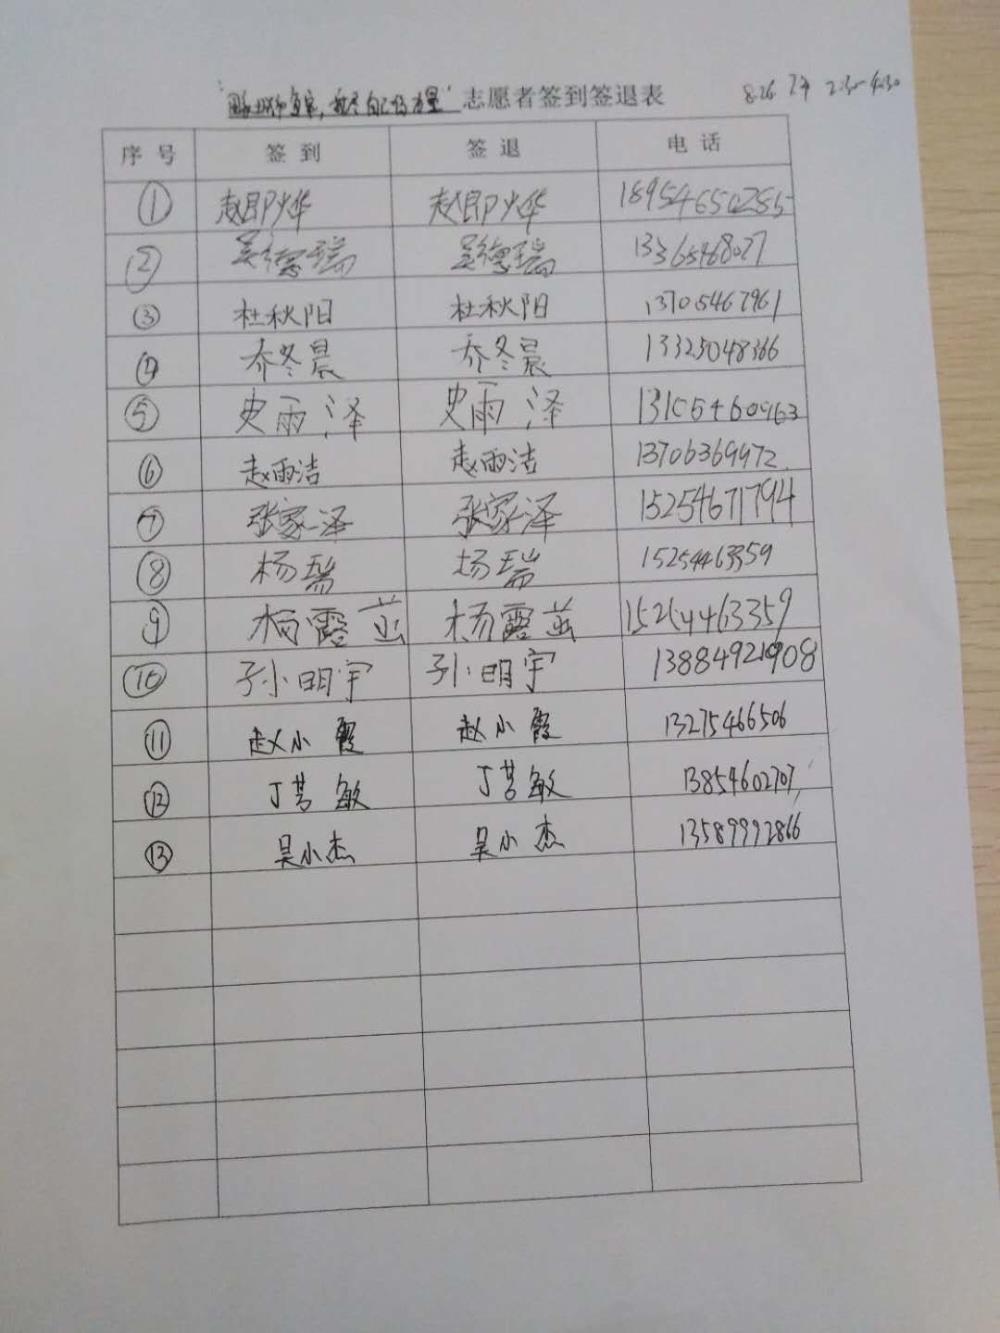 志愿者签到签退表 8.26 下午 2:30-4:30
序号 签到 签退 电话
① 赵即烨 赵即烨 18954650255
② 吴德瑞 吴德瑞 13365468027
③ 杜秋阳 杜秋阳 13705467961
④ 乔冬晨 乔冬晨 13325048366
⑤ 史雨泽 史雨泽
⑥ 赵雨洁 赵雨洁 13706369972
⑦ 张家泽 张家泽 15254671794
⑧ 杨瑞 杨瑞 15254463359
⑨ 杨露茁 杨露茁 15254463359
⑩ 孙明宇 孙明宇 13884921908
⑪ 赵小霞 赵小霞 13275466506
⑫ 丁芳敏 丁芳敏 13854602707
⑬ 吴小杰 吴小杰 13589992866